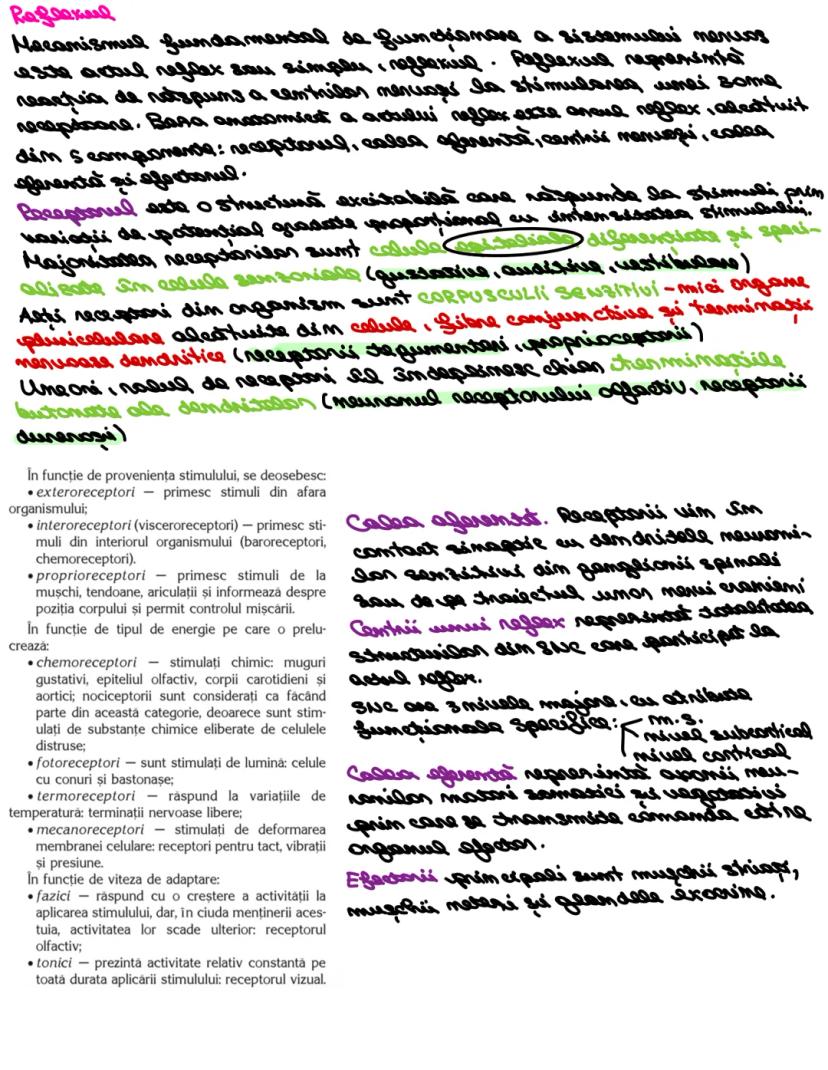 Reflexul
Mecanismul fundamental de funcționare a sistemului nervos
este actul reflex sau simplu, reflexul. Reflexul reprezintă
reacția de răspuns a centrilor nervoși la stimularea unei zone
receptoare. Baza anatomică a actului reflex este arcul reflex, alcătuit
din 5 componente: receptorul, calea aferentă, centrii nervoși, calea
eferentă și efectorul.
Receptorul este o structură excitabilă care răspunde la stimuli prin
variații de potențial gradate proporțional cu intensitatea stimulului.
Majoritatea receptorilor sunt celule epiteliale diferențiate și speci-
alizate în celule senzoriale (gustative, auditive, vestibulare)
Alți receptori din organism sunt CORPUSCULII SENZITIVI - mici organe
pluricelulare alcătuite din celule, fibre conjunctive și terminații
nervoase dendritice (receptorii tegumentari, proprioceptorii)
Uneori, rolul de receptori îl îndeplinesc chiar terminațiile
butonate ale dendritelor (neuronul receptorului olfactiv, receptorii
dureroși)
În funcție de proveniența stimulului, se deosebesc:
• exteroreceptori — primesc stimuli din afara
organismului;
• interoreceptori (visceroreceptori) — primesc sti-
muli din interiorul organismului (baroreceptori,
chemoreceptori).
• proprioreceptori — primesc stimuli de la
mușchi, tendoane, ariculații și informează despre
poziția corpului și permit controlul mișcării.
În funcție de tipul de energie pe care o prelu-
crează:
• chemoreceptori — stimulați chimic: muguri
gustativi, epiteliul olfactiv, corpii carotidieni și
aortici; nociceptorii sunt considerați ca făcând
parte din această categorie, deoarece sunt stim-
ulați de substanțe chimice eliberate de celulele
distruse;
• fotoreceptori — sunt stimulați de lumină: celule
cu conuri și bastonașe;
• termoreceptori — răspund la variațiile de
temperatură: terminații nervoase libere;
• mecanoreceptori — stimulați de deformarea
membranei celulare: receptori pentru tact, vibrații
și presiune.
În funcție de viteza de adaptare:
• fazici — răspund cu o creștere a activității la
aplicarea stimulului, dar, în ciuda menținerii aces-
tuia, activitatea lor scade ulterior: receptorul
olfactiv;
• tonici — prezintă activitate relativ constantă pe
toată durata aplicării stimulului: receptorul vizual.
Calea aferentă. Receptorii vin în
contact sinaptic cu dendritele neuroni-
lor senzitivi din ganglionii spinali
sau de pe traiectul unor nervi cranieni
Centrii unui reflex reprezintă totalitatea
structurilor din SNC care participă la
actul reflex.
SNC are 3 nivele majore, cu atribute
funcționale specifice: m.s.
nivel subcortical
nivel cortical
Calea eferentă reprezintă axonii neu-
ronilor motori somatici și vegetativi
prin care se transmite comanda către
organul efector.
Efectorii principali sunt mușchii striați,
mușchii netezi și glandele exocrine.